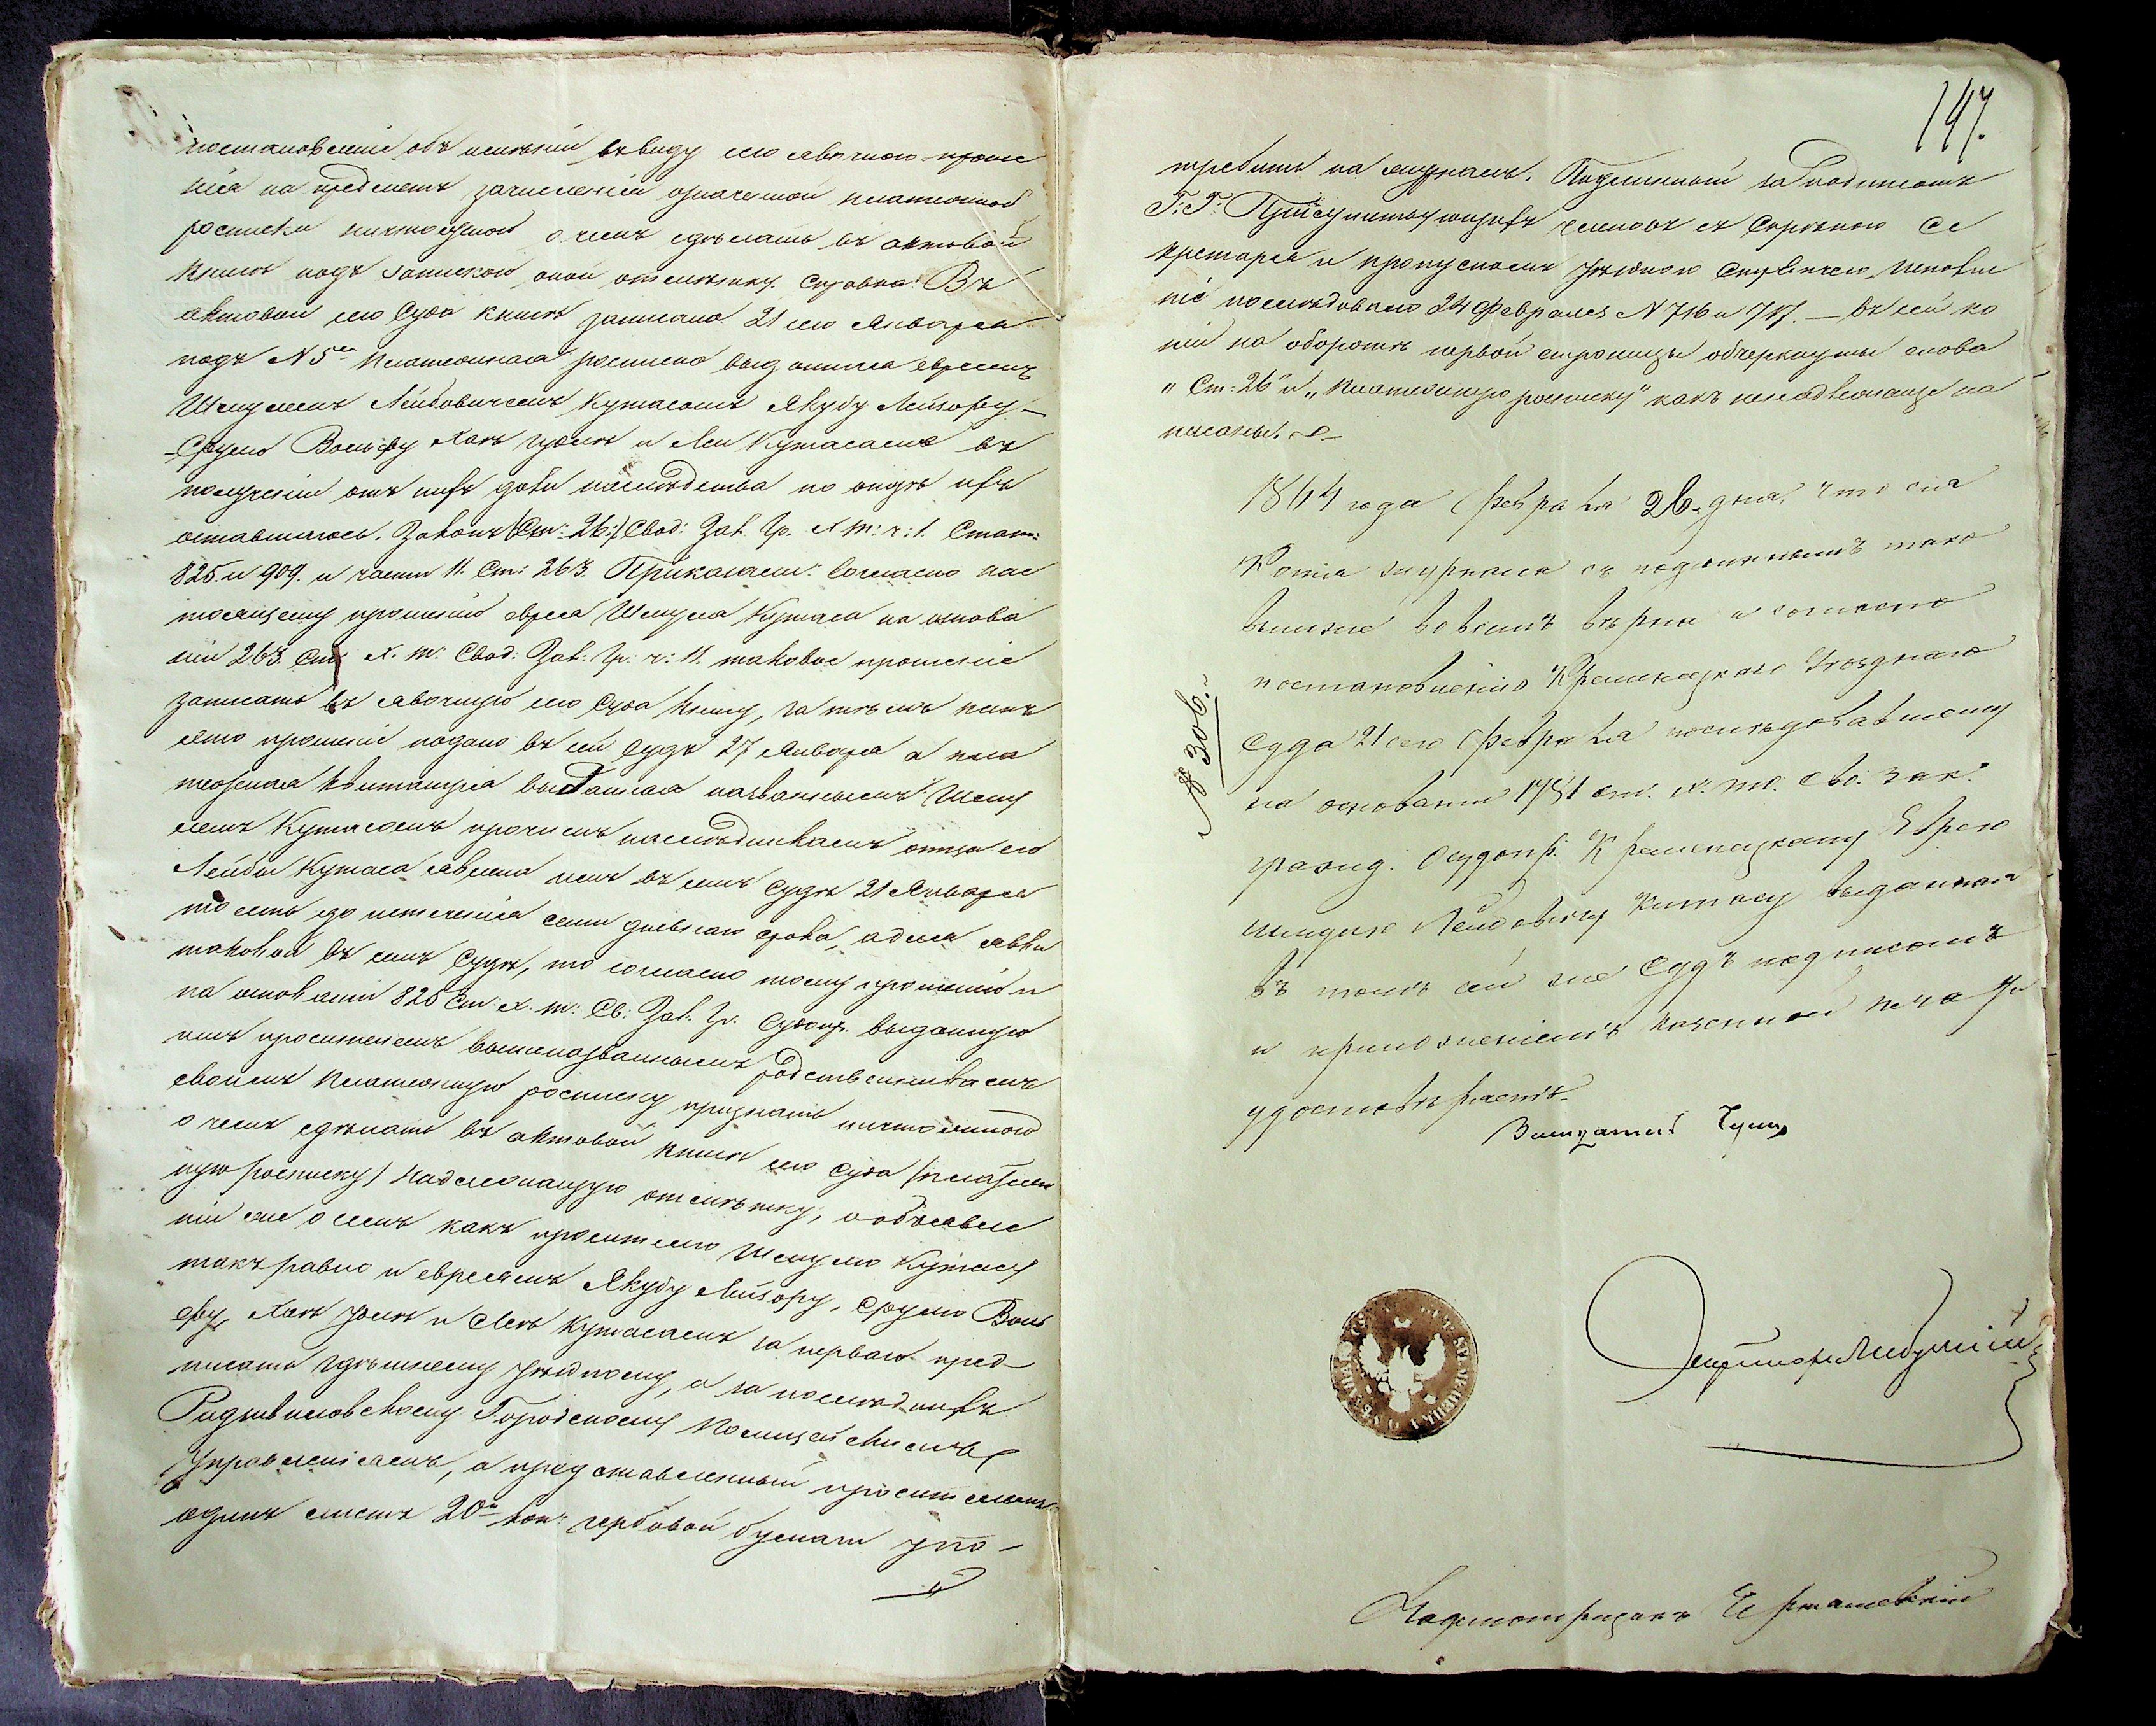 постановленіе объ исполненіи въ виду его явочнаго проше
нія на предметъ зачисленія означенной платежной
росписки ничтожною о чемъ сдѣлать въ актовой
книгѣ подъ запискою оной отмѣтку. Справка: Въ
актовой сего Суда книгѣ записана 21 сего Января
подъ N 5 платежная росписка выданная евреемъ
Шмулемъ Лейбовичемъ Кутасомъ Якубу Лейзору,
Срулю Вольфу Ханѣ и Леи Кутасамъ въ
полученіи отъ нихъ наслѣдства по отцѣ ихъ
оставшагося. Законъ (Ст: 26:) Свод: Зак. Гр. X т: ч: 1. Стат:
825. и 909. и части 11. Ст: 263. Приказали: Согласно нас
тоящему прошенію еврея Шмуля Кутаса на основа
ніи 263. Ст. X. т. Свод: Зак: Гр: ч: 11. таковое прошеніе
записать въ явочную сего Суда книгу, за тѣмъ какъ
это прошеніе подано въ сей Судъ 27 Января а пла
тежная квитанція выданная названнымъ Шму
лемъ Кутасомъ прочимъ наслѣдникамъ отца его
Лейбы Кутаса явлена имъ въ семъ Судѣ 21 Января
то есть до истеченія семи дневнаго срока, для явки
таковой въ семъ Судѣ, то согласно тому прошенію и
на основаніи 825 Ст. X. т: Св: Зак. Гр. Судопр. выданную
имъ просителемъ вышеназваннымъ родственникамъ
своимъ платежную росписку признать ничтожною
о чемъ сдѣлать въ актовой книгѣ сего Суда (платеж
ную росписку) надлежащую отмѣтку, а объявле
ніи же о семъ какъ просителю Шмулю Кутасу
такъ равно и евреямъ Якубу Лейзору, Срулю Воль
фу, Ханѣ и Леѣ Кутасамъ за перваго пред
писать здѣшнему уѣздному, а за послѣднихъ
Радзивиловскому Городскому Полицейскимъ
Управленіямъ, а представленный просителемъ
одинъ листъ 20 коп: гербовой бумаги упо-
147.
требить на журналъ. Подлинный за подписомъ
Г: Г: Присутствующихъ членовъ съ Скрѣпою Се
кретаря и пропускомъ уѣзднаго Стряпчего. Исполне
ніе послѣдовало 24 Февраля N 716 и 717. — Въ сей ко
піи на оборотѣ первой страницы обчеркнуты слова
„Ст: 26" и „платежную росписку" какъ ненадлежаще на
писаны.
1864 года Февраля 26. дня, что сія
Копія журнала съ подлиннымъ тако
вымже во всемъ вѣрна и согласно
постановленію Кременецкаго Уѣзднаго
Суда 21 сего Февраля послѣдовавшему
на основаніи ст. X. т. Сво. зак.
гражд. Судопр. Кременецкому Еврею
Шмулю Лейбовичу Кутасу выданная
въ томъ сей же Судъ подписомъ
и приложеніемъ казенной печати
удостовѣряетъ.
N 306.